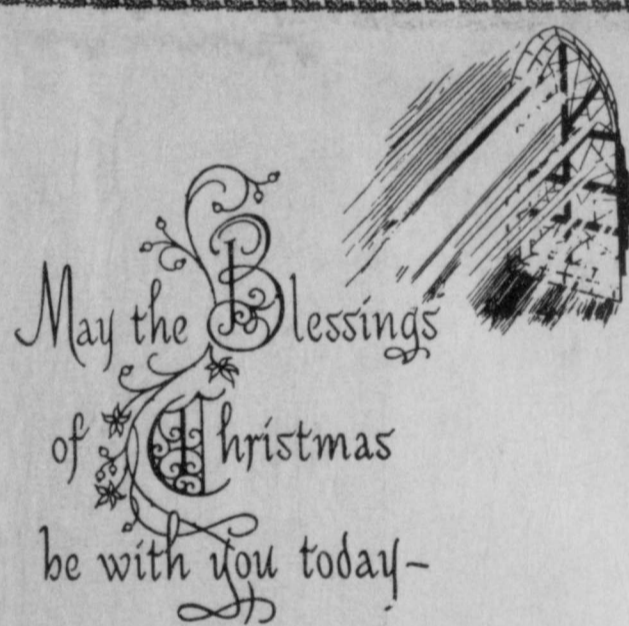 May the Blessings
of Christmas
be with you today–